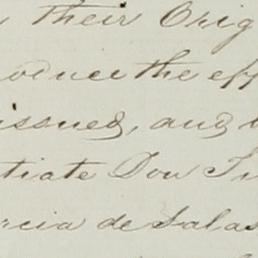 their Orig
oduce the eff
issued, and
tiate Don
rcia de Salas